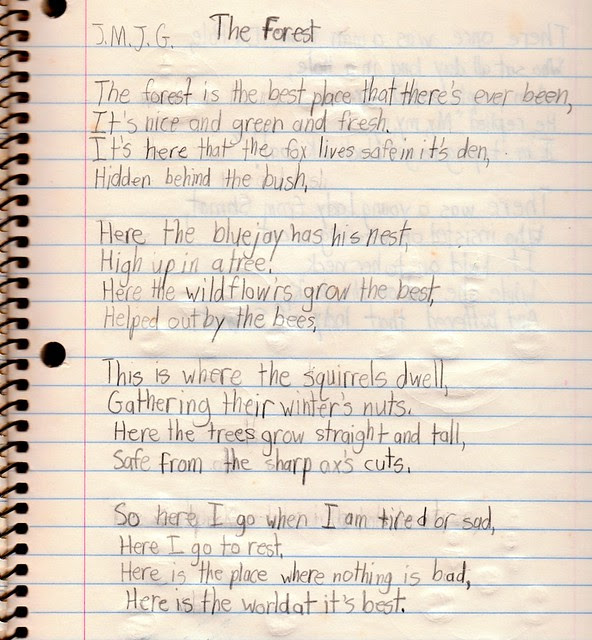 J.M.J.G. The Forest
The forest is the best place that there's ever been,
It's nice and green and fresh.
It's here that the fox lives safe in it's den,
Hidden behind the bush,
Here the bluejay has his nest,
High up in a tree.
Here the wildflow'rs grow the best,
Helped out by the bees,
This is where the squirrels dwell,
Gathering their winter's nuts.
Here the trees grow straight and tall,
Safe from the sharp ax's cuts.
So here I go when I am tired or sad,
Here I go to rest,
Here is the place where nothing is bad,
Here is the world at it's best.